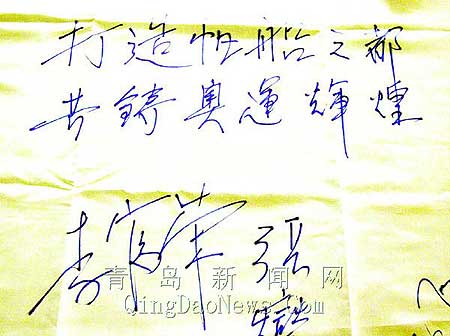 打造帆船之都
共铸奥運輝煌
李富荣 張
青岛新闻网
QingDaoNews.Com